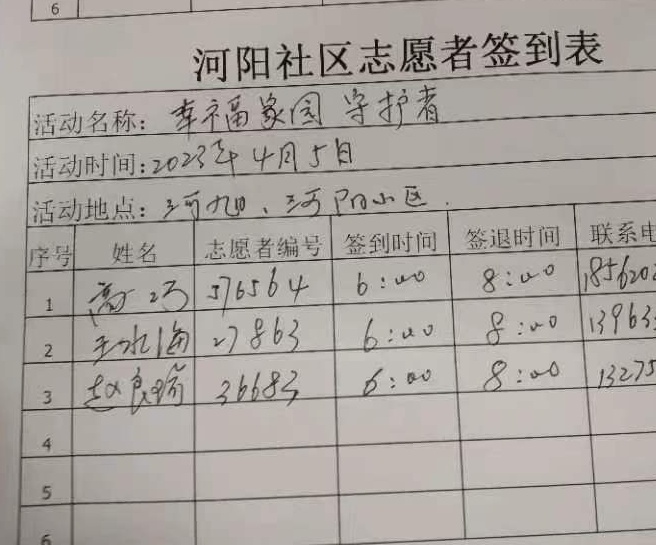 6
河阳社区志愿者签到表
活动名称：幸福家园 守护者
活动时间:2023年4月5日
活动地点：河旭、河阳小区.
序号 姓名 志愿者编号 签到时间 签退时间 联系电
1 高巧 576564 6:00 8:00 185620
2 王永海 27863 6:00 8:00 13963
3 赵良瑞 36683 6:00 8:00 13275
4
5
6